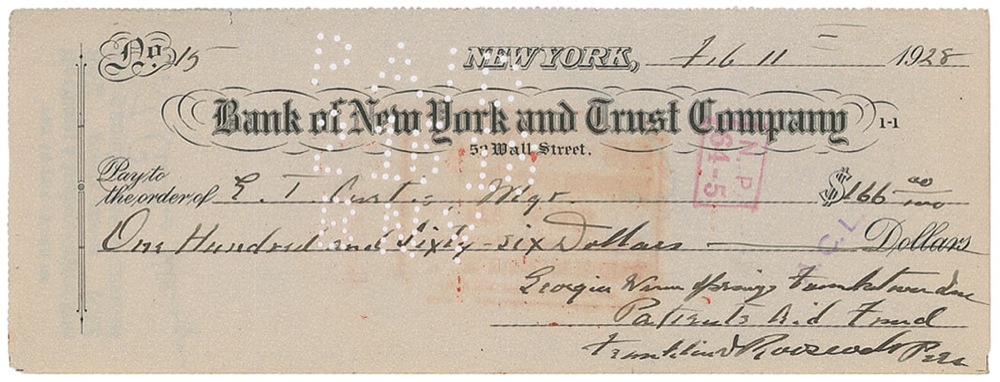 No. 15 NEW YORK, Feb 11 1928
Bank of New York and Trust Company 1-1
52 Wall Street.
Pay to
the order of E. T. Curtis, Mgr. $166 00/100
One Hundred and Sixty-six Dollars Dollars
Georgia Warm Springs Foundation
Patients Aid Fund
Franklin D Roosevelt Pres
PAID
N. P.
64-5